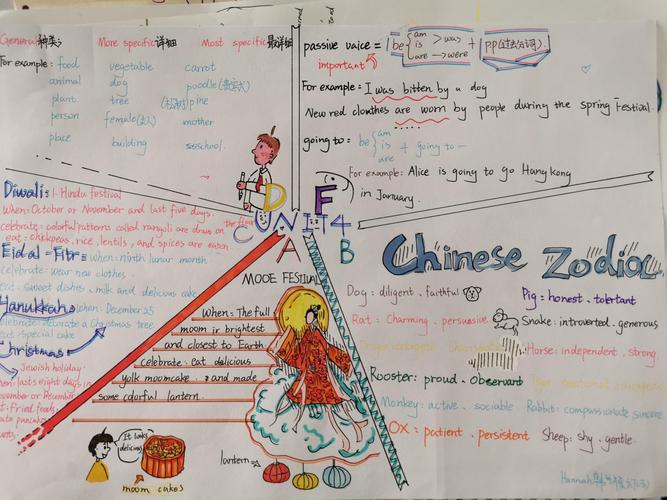 General种类
More specific详细
Most specific最详细
For example: food
vegetable
carrot
animal
dog
poodle(贵宾犬)
plant
tree
(松树)pine
person
female(女人)
mother
place
building
passive vaice =
be
am
is
> was
are → were
+
PP(过去分词)
important
For example: I was bitten by a dog
New red clothes are worn by people during the spring Festival.
going to:
be
am
is
are
+ going to
For example: Alice is going to go Hang kong
in January.
D
F
C
UNIT4
A
B
Diwali: 1. Hindu festival
When: October or November and last five days.
celebrate: colorful patterns called rangoli are draw on the floor
eat: chickpeas, rice, lentils, and spices are eaten
Eid al-Fitr: when: ninth lunar month
celebrate: wear new clothes
eat: sweet dishes, milk and delicious cake
Hanukkah: when: December 25
celebrate: decorate a Christmas tree
eat: special cake
Christmas
Jewish holiday
when: lasts eight days in
November or December
fried foods
MOOE FESTIVAL
When: The full
moom ir brightest
and closest to Earth
celebrate: eat delicious
yolk moomcake, and made
some colorful lantern.
It looks
delicious
moom cakes
lantern
Chinese Zodiac
Dog: diligent, faithful
Pig: honest, tolertant
Rat: Charming, persuasive
Snake: introverted, generous
Horse: independent, strong
Rooster: proud, Observant
Tiger: emotional, courageous
Monkey: active, sociable
Rabbit: compassionate, sincere
OX: patient, persistent
Sheep: shy, gentle
Hannah